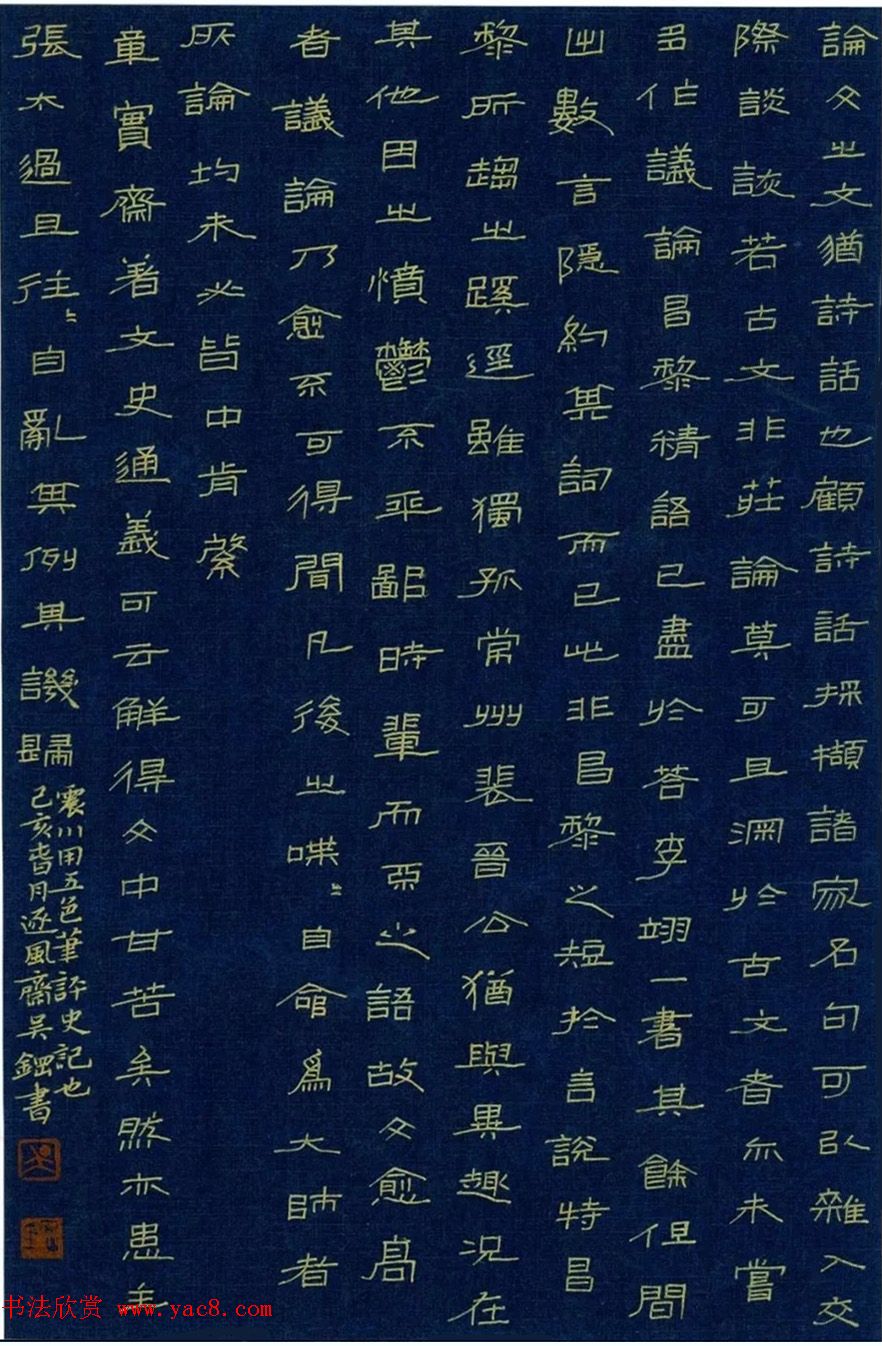 論文之文猶詩話也顧詩話採擷諸家名句可以雜入交
際談談若古文非莊論莫可且溺於古文者亦未嘗
多作議論昌黎精語已盡於答李翊一書其餘但間
出數言隱約其詞而已此非昌黎之短於言說特昌
黎所趨之蹊徑雖獨孤常州裴晉公猶與異趣況在
其他因之憤鬱不平鄙時輩而亞之語故文愈高
者議論乃愈不可得聞凡後之喋〻自命為大師者
所論均未必皆中肯綮
章實齋著文史通義可云解得文中甘苦矣然亦患主
張太過且往〻自亂其例其譏歸
震川用五色筆評史記也
己亥春月逐風齋吳鋼書
书法欣赏 www.yac8.com